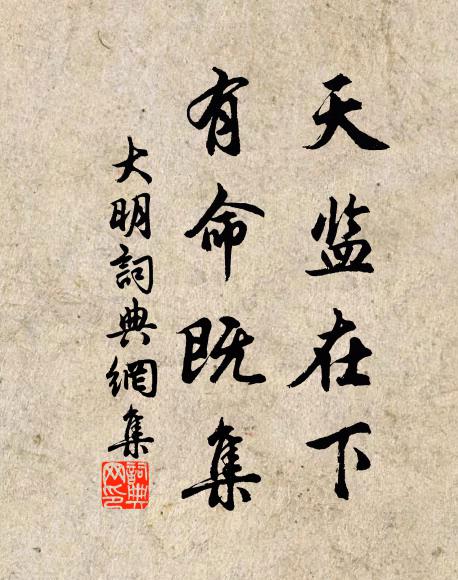 天监在下
有命既集
大明詞典網集
詞典
网印